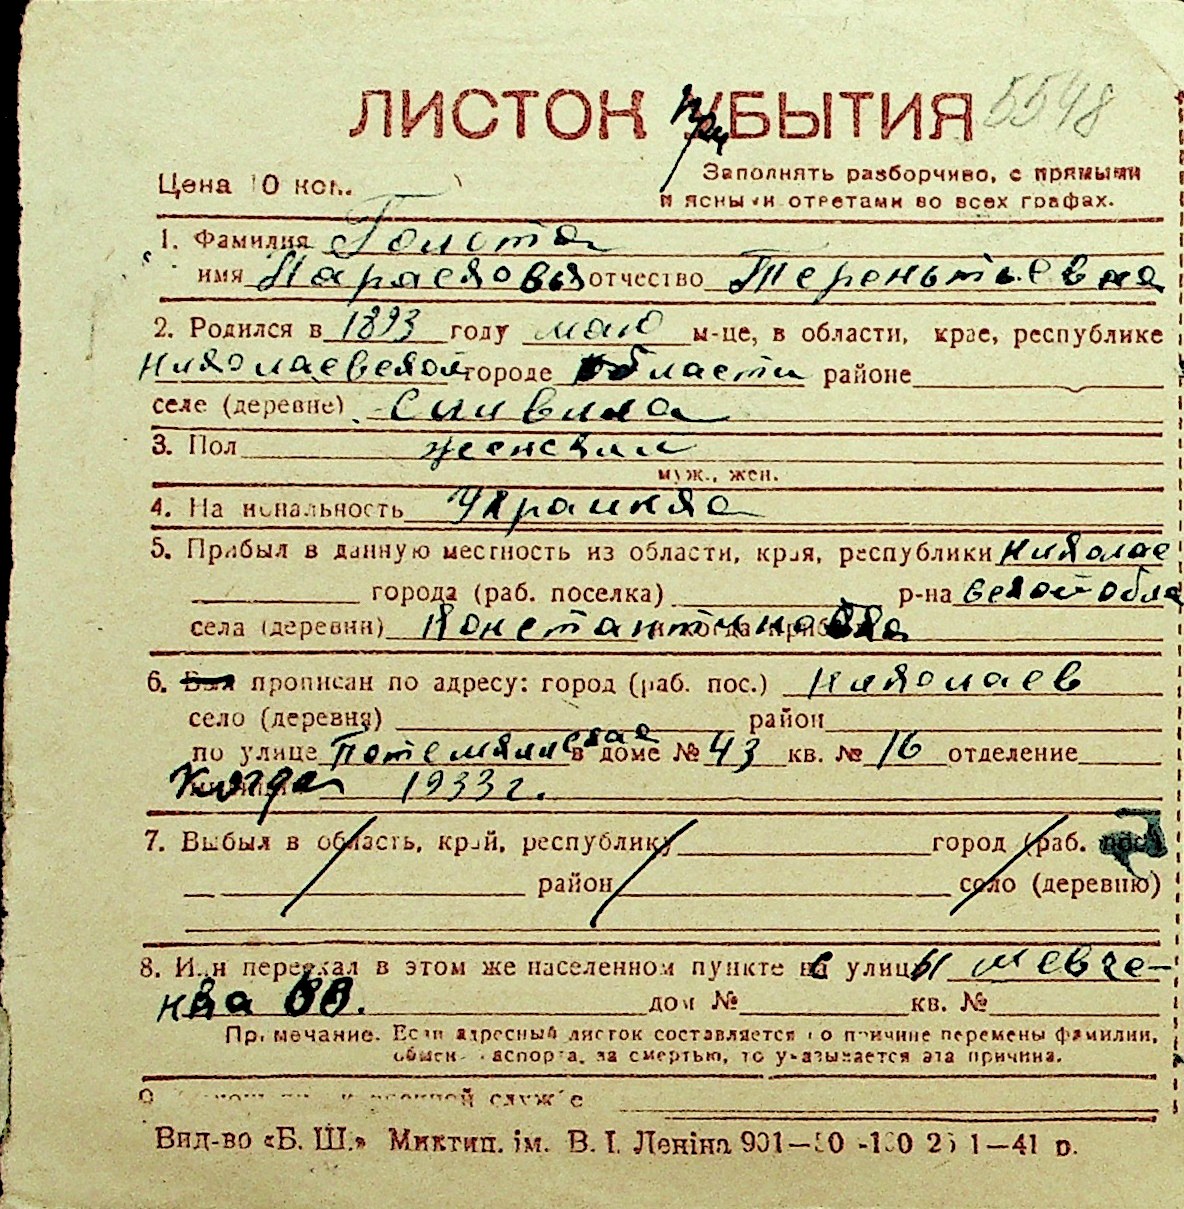 ЛИСТОК прибЫТИЯ 5548
Цена 10 коп.
Заполнять разборчиво, с прямыми
и ясными ответами во всех графах.
1. Фамилия Голота
имя Парасковья отчество Терентьевна
2. Родился в 1893 году маю м-це, в области, крае, республике
Николаевской городе области районе
селе (деревне)
3. Пол женский
муж., жен.
4. Национальность Украинка
5. Прибыл в данную местность из области, края, республики Николае
города (раб. поселка) р-на вской обла
села (деревни) Константиновка
6. Был прописан по адресу: город (раб. пос.) Николаев
село (деревня) район
по улице Потемкинская в доме № 43 кв. № 16 отделение
когда 1933 г.
7. Выбыл в область, край, республику город (раб. пос.)
район село (деревню)
8. Или переехал в этом же населенном пункте с улицы Шевче-
нка 88. дом № кв. №
Примечание. Если адресный листок составляется по причине перемены фамилии,
обмена паспорта, за смертью, то указывается эта причина.
9. службе
Вид-во «Б. Ш.» Миктип. ім. В. І. Леніна 901—50 1—41 р.